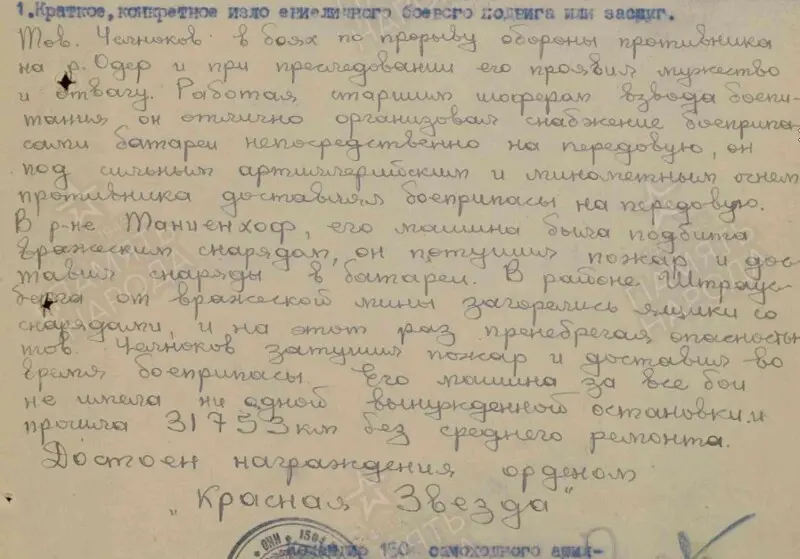 1. Краткое, конкретное изло ениеличного боевого подвига или заслуг.
Тов. Челноков в боях по прорыву обороны противника
на р. Одер и при преследовании его проявил мужество
и отвагу. Работая старшим шофером взвода боепи-
тания он отлично организовал снабжение боеприпа
сами батареи непосредственно на передовую, он
под сильным артиллерийским и минометным огнем
противника доставлял боеприпасы на передовую.
В р-не Танненхоф, его машина была подбита
вражеским снарядом, он потушил пожар и дос-
тавил снаряды в батареи. В районе Штраус-
берга от вражеской мины загорелись ящики со
снарядами, и на этот раз пренебрегая опасность
тов. Челноков затушил пожар и доставил во
время боеприпасы. Его машина за все бои
не имела ни одной вынужденной остановки и
прошла 31753 км без среднего ремонта.
Достоен награждения орденом
„Красная Звезда"
самоходного